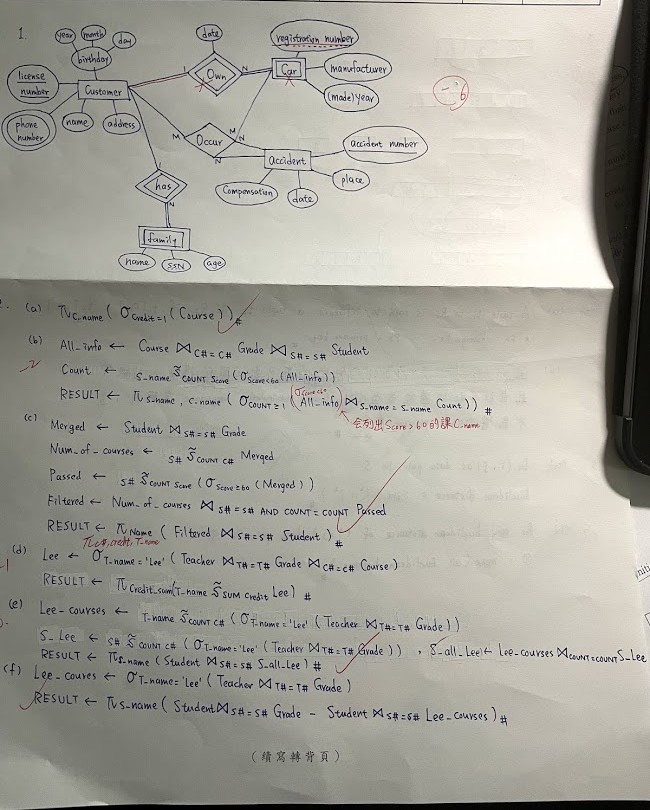 1
year
month
day
birthday
license number
Customer
phone number
name
address
date
Own
1
N
registration number
Car
manufacturer
(made) year
-6
M
Occur
M
N
N
accident
accident number
Compensation
date
place
1
has
N
family
name
SSN
age
(a) π C_name ( σ Credit=1 ( Course ) ) #
(b) All_info ← Course ⋈ C#=C# Grade ⋈ S#=S# Student
-2
Count ← S_name ℱ COUNT Score ( σ Score<60 (All_info) )
σ score<60
RESULT ← π S_name, C_name ( σ COUNT≥1 ( All_info ⋈ S_name=S_name Count ) ) #
會列出Score>60的課C_name
(c) Merged ← Student ⋈ S#=S# Grade
Num_of_courses ← S# ℱ COUNT C# Merged
Passed ← S# ℱ COUNT Score ( σ Score≥60 ( Merged ) )
Filtered ← Num_of_courses ⋈ S#=S# AND COUNT=COUNT Passed
RESULT ← π Name ( Filtered ⋈ S#=S# Student ) #
π C#, credit, T-name
(d) Lee ← σ T_name='Lee' ( Teacher ⋈ T#=T# Grade ⋈ C#=C# Course )
-1
RESULT ← π Credit_sum ( T_name ℱ SUM Credit Lee ) #
(e) Lee_courses ← T_name ℱ COUNT C# ( σ T_name='Lee' ( Teacher ⋈ T#=T# Grade ) )
S_Lee ← S# ℱ COUNT C# ( σ T_name='Lee' ( Teacher ⋈ T#=T# Grade ) ) , S_all_Lee ← Lee_courses ⋈ COUNT=COUNT S_Lee
RESULT ← π S_name ( Student ⋈ S#=S# S_all_Lee ) #
(f) Lee_coures ← σ T_name='Lee' ( Teacher ⋈ T#=T# Grade )
RESULT ← π S_name ( Student ⋈ S#=S# Grade - Student ⋈ S#=S# Lee_courses ) #
(續寫轉背頁)